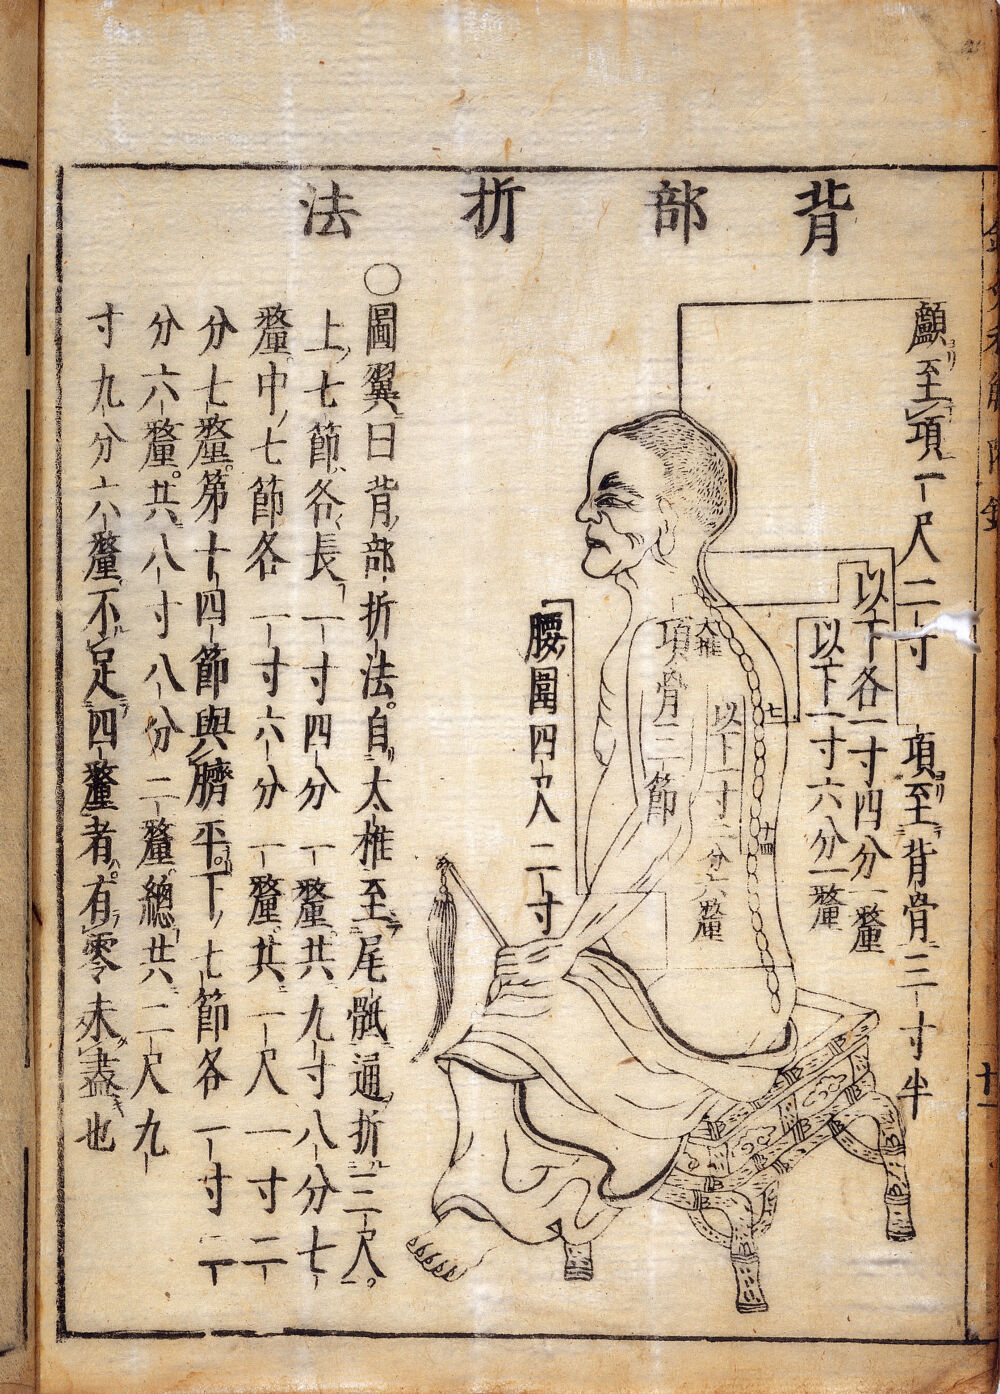 背部折法
顱至項一尺二寸
項至背骨三寸半
以下各一寸四分一釐
以下一寸六分一釐
大椎
項骨三節
七
十四
以下一寸二分六釐
腰圍四尺二寸
〇圖翼曰背部折法自大椎至尾骶通折三尺
上七節各長一寸四分一釐共九寸八分七
釐中七節各一寸六分一釐共一尺一寸二
分七釐第十四節與臍平下七節各一寸二
分六釐共八寸八分二釐總共二尺九
寸九分六釐不足四釐者有零未盡也
十一